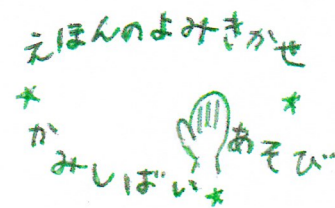 えほんのよみきかせ
かみしばい
あそび